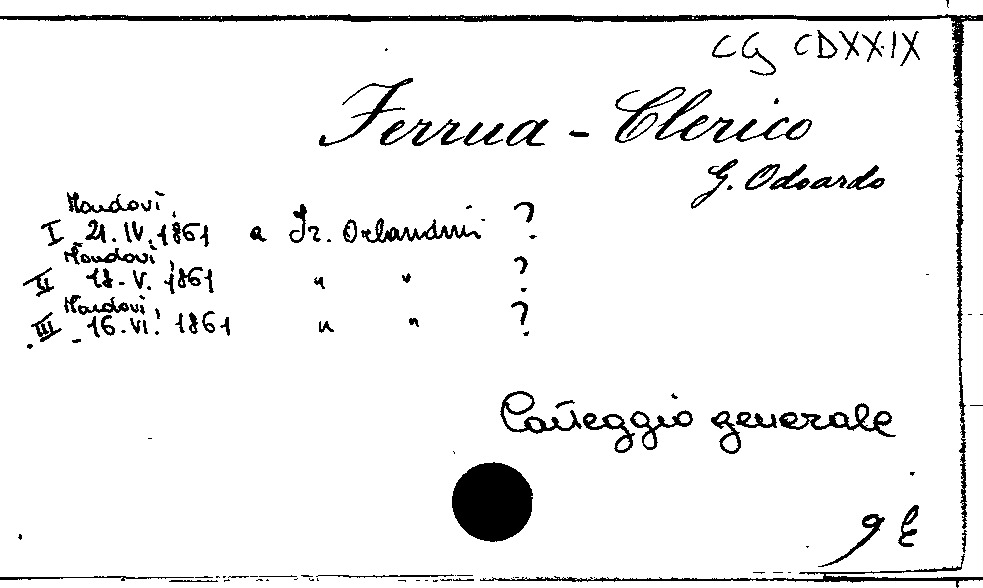 CG CDXXIX
Ferrua - Clerico
G. Odoardo
Mondovì,
I 21.IV.1861 a Fr. Orlandini ?
Mondovì,
II 18.V.1861 " " ?
Mondovì,
III 16.VI.1861 " " ?
Carteggio generale
9 E